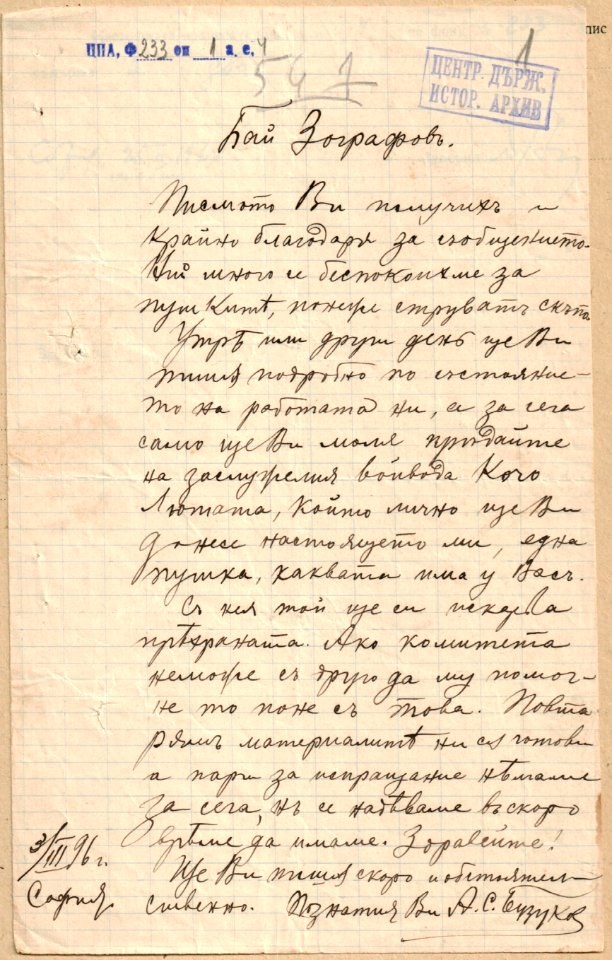 пис
ЦПА, Ф 233 оп 1 а. е. 4
1
ЦЕНТР. ДЪРЖ.
ИСТОР. АРХИВ
Бай Зографовъ.
Писмото Ви получихъ и
крайно благодаря за съобщението.
Ний много се беспокоихме за
пушкитѣ, понеже струватъ скѫпо.
Утрѣ или други день ще Ви
пишѫ подробно по състояние-
то на работата ни, а за сега
само ще Ви моля придайте
на заслужелия войвода Кочо
Лютата, който лично ще Ви
донесе настоящето ми, една
пушка, каквато има у Васъ.
Съ нея той ще си искарва
прѣхраната. Ако комитета
неможе съ друго да му помог-
не то поне съ това. Повта
рямъ материалитѣ ни сѫ готови
а пари за испращание нѣмаме
за сега, нъ се надѣваме въ скоро
врѣме да имаме. Здравейте!
Ще Ви пишѫ скоро и обстоятел-
ственно. Познатия Ви А. С. Бузуков
3/III 96 г.
София